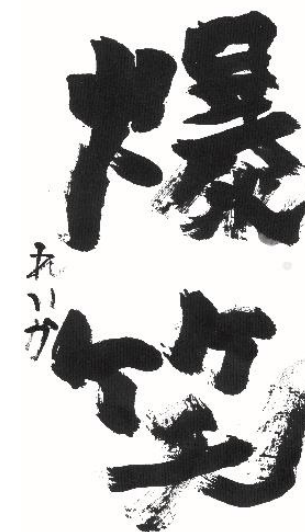 爆笑
れいか